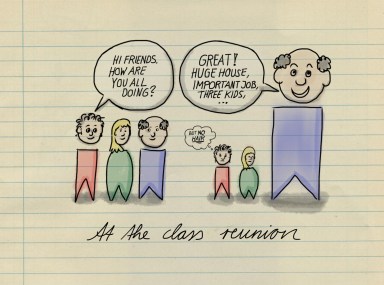 HI FRIENDS,
HOW ARE
YOU ALL
DOING?
GREAT!
HUGE HOUSE,
IMPORTANT JOB,
THREE KIDS,
...
BUT NO
HAIR!
At the class reunion